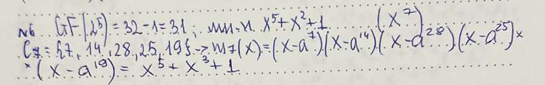 №6 GF[2⁵] = 32-1 = 31; мин. п. x⁵+x²+1 (x⁷)
C₇ = {7, 14, 28, 25, 19} → m₇(x) = (x-a⁷)(x-a¹⁴)(x-a²⁸)(x-a²⁵)×
×(x-a¹⁹) = x⁵+x³+1